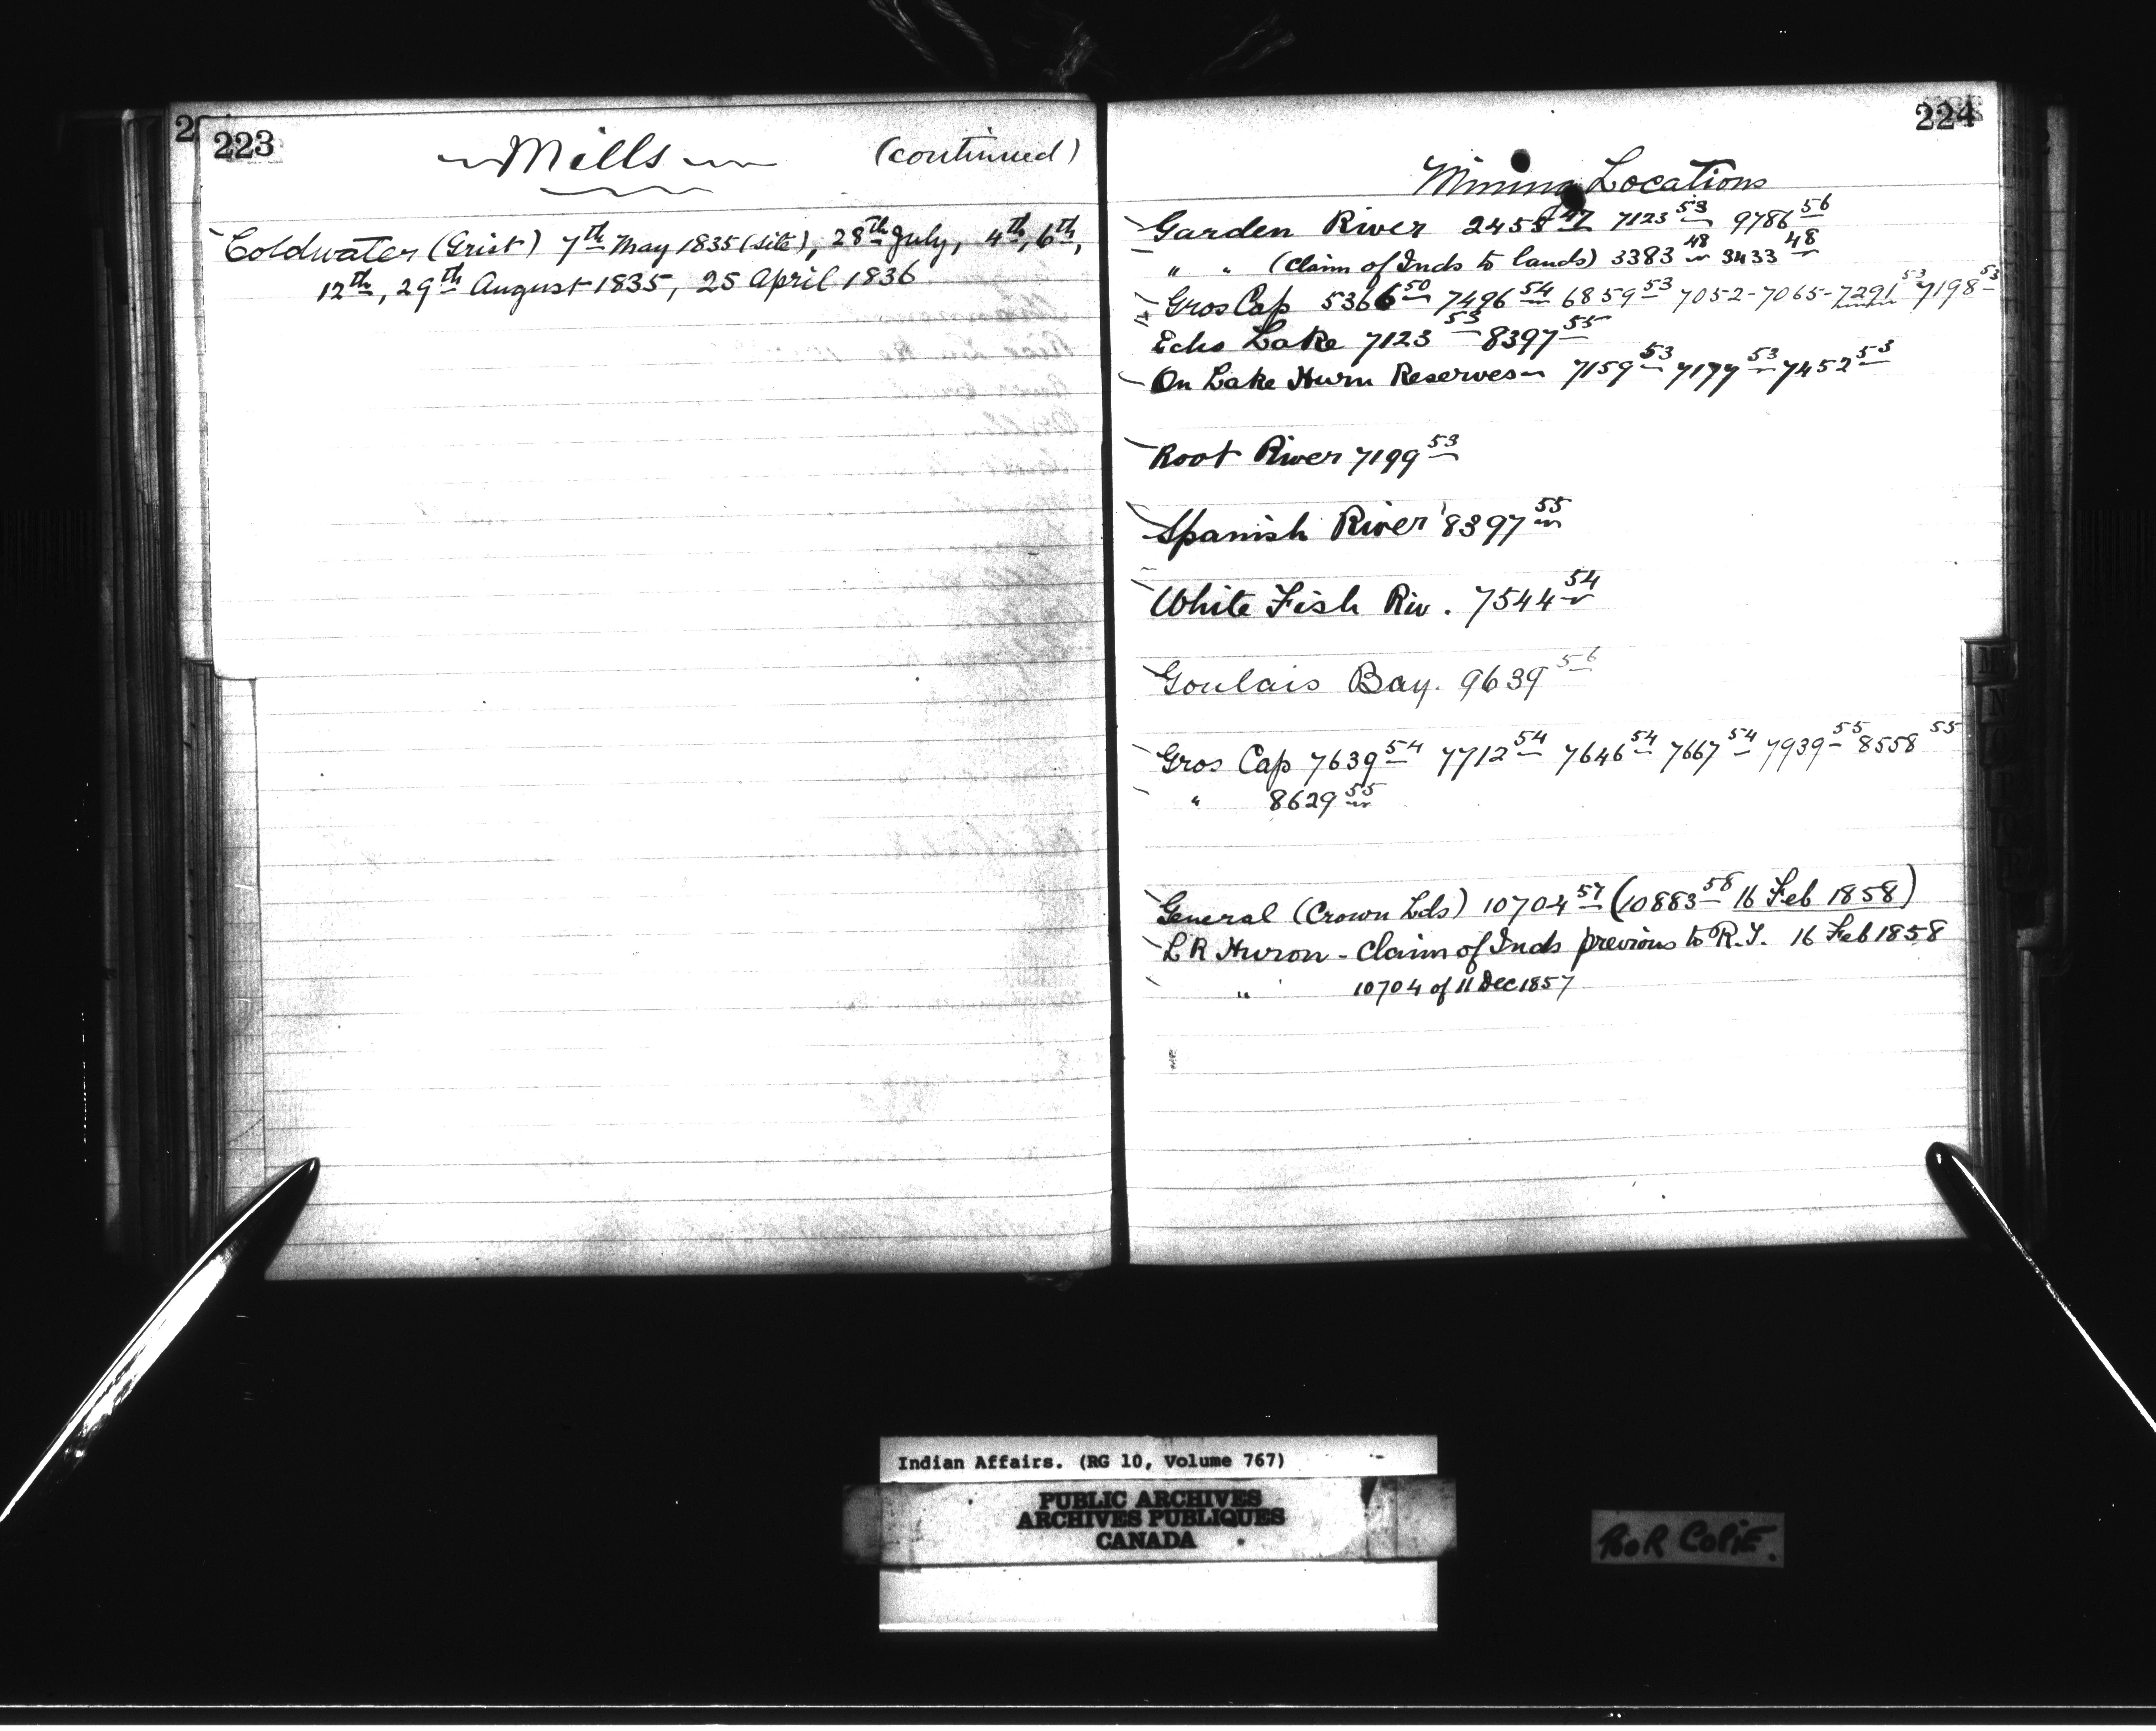 223
Mills (continued)
Coldwater (Grist) 7th May 1835 (site), 28th July, 4th, 6th,
12th, 29th August 1835, 25 April 1836
224
Mining Locations
Garden River 2458 47 7123 53 9786 56
" " (Claim of Inds to lands) 3383 48 3433 48
Gros Cap 5366 50 7496 54 6859 53 7052-7065-7291 53 7198 53
Echo Lake 7123 53 8397 55
On Lake Hurn Reserves 7159 53 7177 53 7452 53
Root River 7199 53
Spanish River 8397 55
White Fish Riv. 7544 54
Goulais Bay. 9639 56
Gros Cap 7639 54 7712 54 7646 54 7667 54 7939 55 8558 55
" 8629 55
General (Crown Lds) 10704 57 (10883 58 16 Feb 1858)
L R Huron - Claim of Inds previous to R.T. 16 Feb 1858
" 10704 of 11 Dec 1857
Indian Affairs. (RG 10, Volume 767)
PUBLIC ARCHIVES
ARCHIVES PUBLIQUES
CANADA
POOR COPIE.